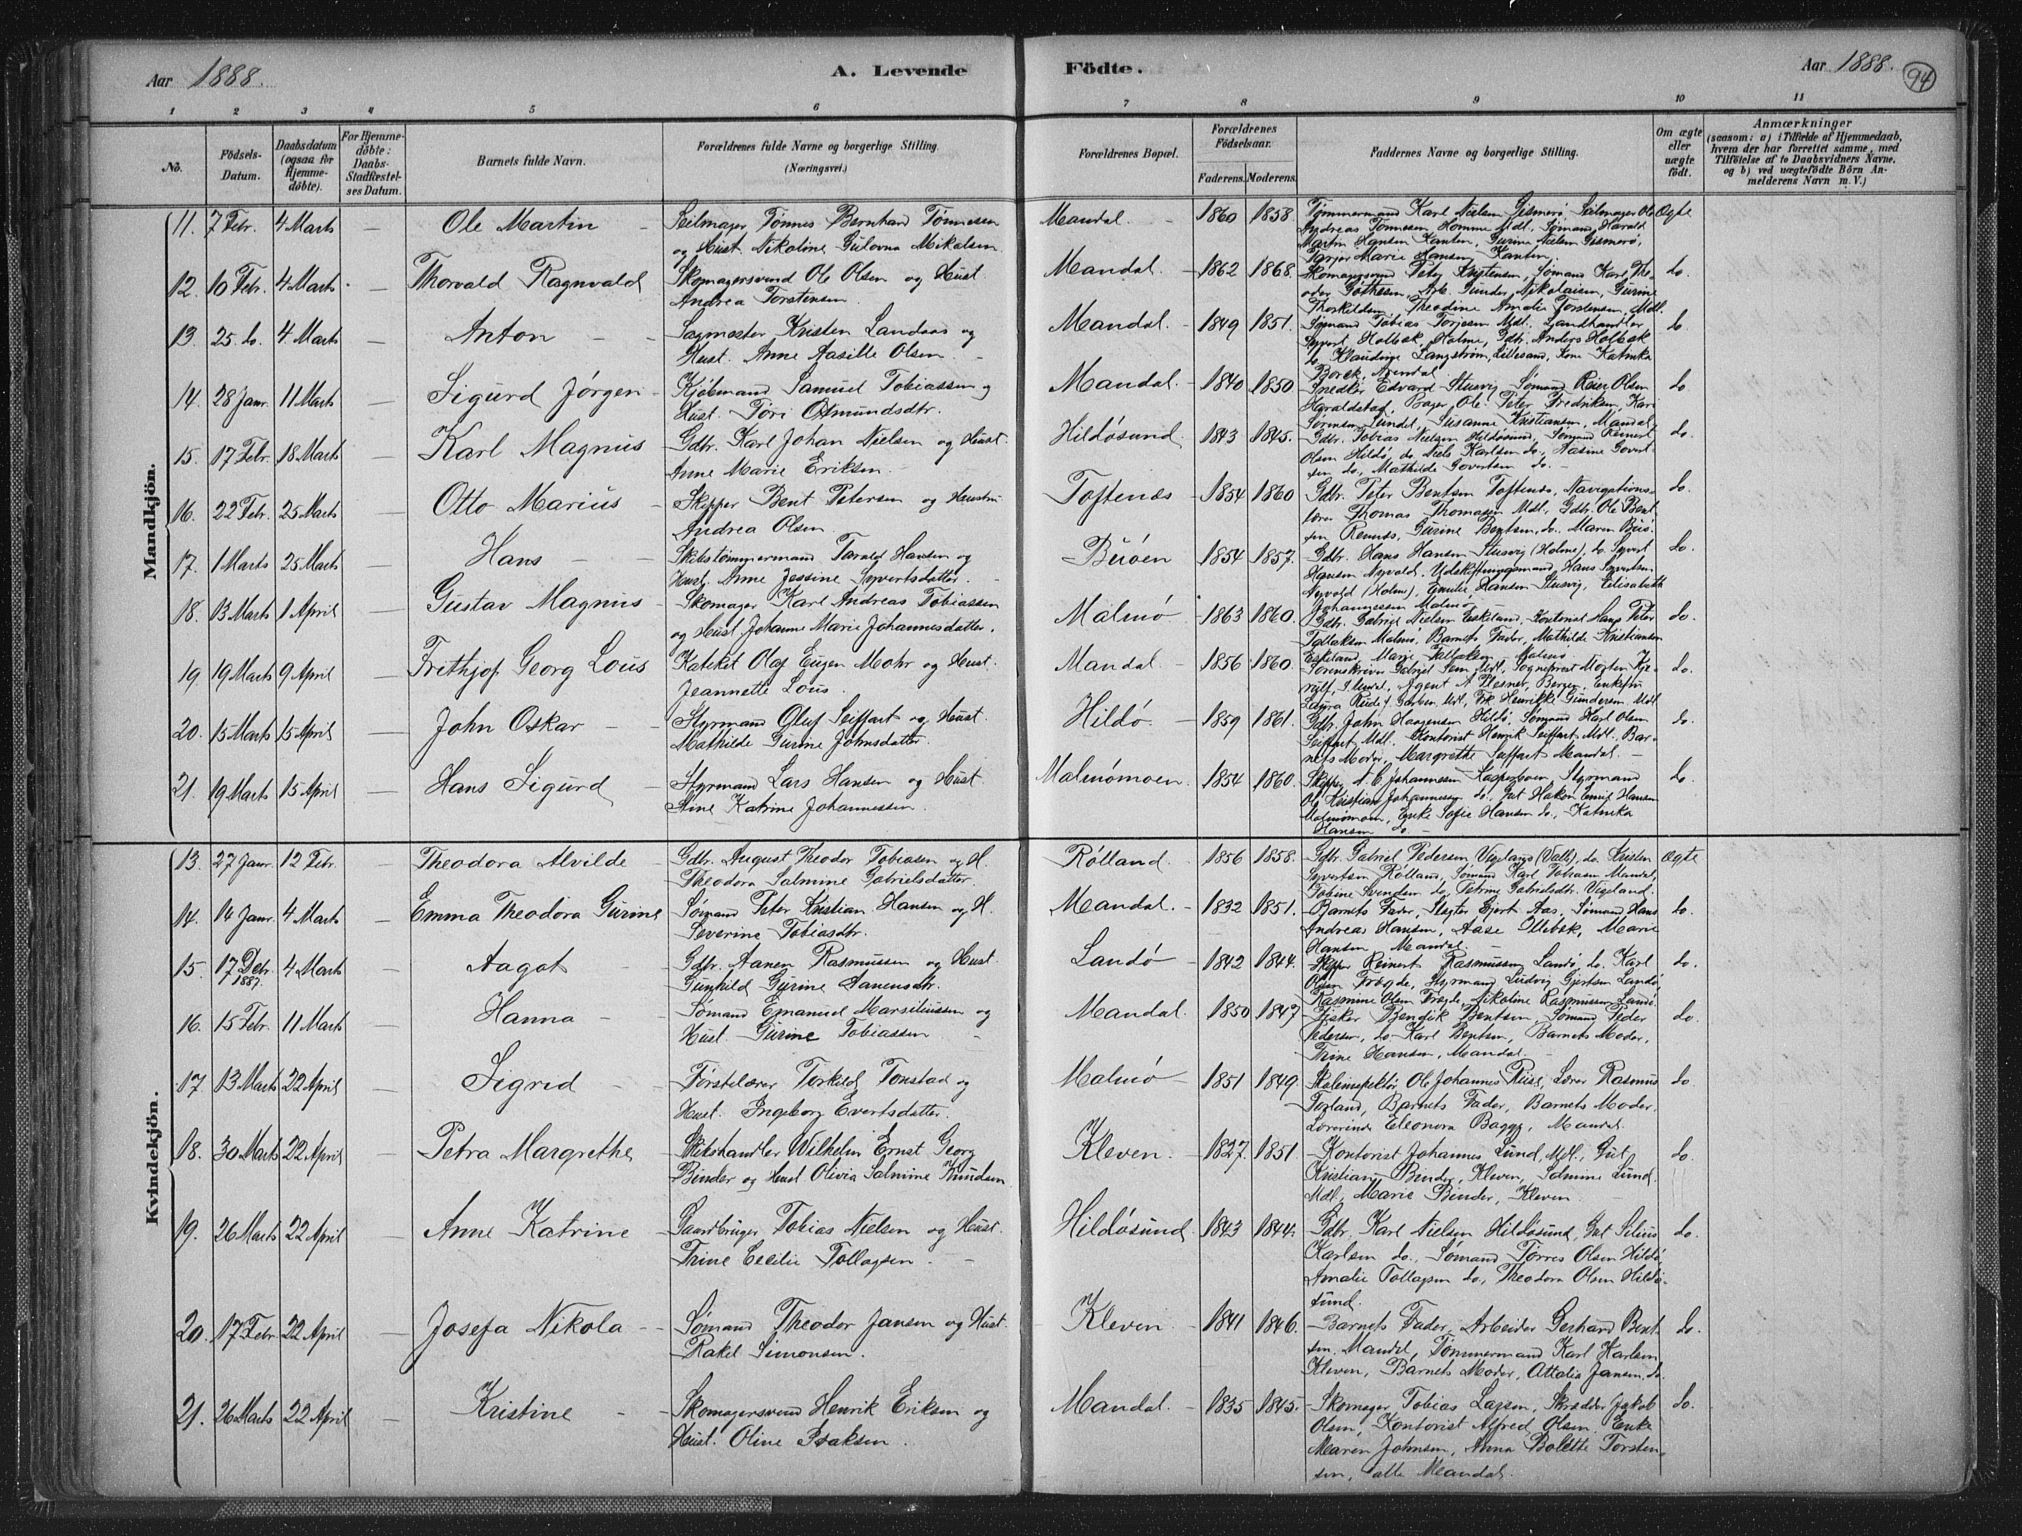 Aar 1888.
A. Levende Födte.
Aar 1888.
94
1 2 3 4 5 6 7 8 9 10 11
No.
Födsels-Datum.
Daabsdatum (ogsaa for Hjemmedöbte).
For Hjemmedöbte: Daabs-Stadfæstelses Datum.
Barnets fulde Navn.
Forældrenes fulde Navne og borgerlige Stilling. (Næringsvei.)
Forældrenes Bopæl.
Forældrenes Födselsaar.
Faderens. Moderens.
Faddernes Navne og borgerlige Stilling.
Om ægte eller uægte födt.
Anmærkninger
(saasom: a) i Tilfælde af Hjemmedaab, hvem der har forrettet samme, med Tilföielse af to Daabsvidners Navne, og b) ved uægtefödte Börn Anmelderens Navn m. V.)
Mandkjön.
11. 7 Febr. 4 Marts — Ole Martin — Seilmager Tønnes Bernhard Tønnesen
og Hust. Nikoline Gulovna Mikalsen
Mandal — 1860 1858. Tømmermand Karl Nielsen Gismerø, Seilmager Ole Ægte
Andreas Tønnesen Homme Mdl. Sømand Harald
Martin Hansen Kanten, Gurine Nielsen Gismerø,
Marie Hansen Kanten.
12. 10 Febr. 4 Marts — Thorvald Ragnvald Skomagersvend Ole Olsen og Hust.
Andrea Torstensen
Mandal. — 1862 1868. Nikolaisen, Gurine do.
Thorkildsen, Theodine Amalie Torstensen, Mdl.
13. 25. do. 4 Marts — Anton — Sagmester Kristen Landaas og
Hust. Anne Aasille Olsen. —
Mandal. — 1849 1851. Sømand Tobias Torjesen Mdl. Landhandler do
Syvert Holbæk, Holme, Gdbr. Anders Holbæk
do. Klaudine Langstrøm, Lillesand, Kone Katrike
Arendal
14. 28 Janr. 11 Marts — Sigurd Jörgen — Kjøbmand Samuel Tobiassen og
Hust. Tøri Osmundsdtr.
Mandal. — 1840 1850 Snedker Edvard Stusvig Sømand Reier Olsen do
Haraldstad, Bager Ole Peter Fredriksen, Karen
Susanne Kristiansen, Mandal,
15. 17 Febr. 18 Marts — Karl Magnus Gdbr. Karl Johan Nielsen og Hust.
Anne Marie Eriksen.
Hildøsund 1843 1845. Gdbr. Tobias Nielsen Hildøsund, Sømand Reinert do.
Olsen Hildø, do Niels Karlsen do, Govert-
sen do, Mathilde Govertsen do. —
16. 22 Febr. 25 Marts — Otto Marius — Skipper Bent Petersen og Hustru
Andrea Olsen
Toftenæs — 1854 1860 Gdbr. Peter Bentsen Toftenæs, Navigations- do.
lærer Thomas Thomassen Mdl, Gdbr. Ole Bent
sen Gurine Bentsen, do. Maren
17. 1 Marts 25 Marts — Hans — Skibstømmermand Tarald Hansen og
Hust. Anne Jessine Syvertsdatter. —
Buøen 1854 1857. Gdbr. Hans Hansen Stusvig (Holme), do. Syvert do.
Hansen Nyvold, Udskiftningsmand Hans Syvertsen
Nyvold (Holme), Emilie Hansen Stusvig, Elisabeth
Johannessen Malmø
18. 13 Marts 1 April — Gustav Magnus — Skomager Karl Andreas Tobiassen
og Hust. Johanne Marie Johannesdatter.
Malmø 1863 1860. Gdbr. Gabriel Nielsen Eskeland, Kontorist Hans Peter do.
Tallaksen Malmø, Barnets Fader, Mathilde Kristiansen
Eskeland, Marie Tallaksen Malmø
19 19 Marts 9 April — Frethjof Georg Lous Kateket Olaf Eugen Mohr og Hust.
Jeannette Lous.
Mandal — 1856 1860 Sorenskriver Gabriel Sem Mdl, Sogneprest Morten Kje- do.
rulf, Agent A. Plesner, Bergen, Enkefru
Mdl, Frk Henrikke Gundersen Mdl
20. 15 Marts 15 April — John Oskar — Styrmand Oluf Seiffart og Hust.
Mathilde Gurine Johnsdatter
Hildø. — 1859 1861. Gdbr. John Haagensen Hildø, Sømand Karl Olsen do.
Seiffart Mdl. Kontorist Henrik Seiffart Mdl. Bar-
nets Moder, Margrethe Seiffart Mandal. —
21. 19 Marts 15 April — Hans Sigurd — Styrmand Lars Hansen og Hust.
Stine Katrine Johannessen.
Malmømoen 1854 1860. Skipper N. C. Johannessen Kasperboen, Styrmand do.
Ole Kristian Johannessen do. Gut Hakon Emil Hansen
Malmømoen, Enke Sofie Hansen do. Katrika
Hansen do —
Kvindekjön.
13. 27 Janr. 12 Febr. — Theodora Alvilde Gdbr. August Theodor Tobiasen og H.
Theodora Salmine Gabrielsdatter.
Rølland. 1856 1858. Gdbr. Gabriel Pedersen Vigeland (Valle), do. Kristen Ægte
Syvertsen Rølland, Sømand Karl Tobiasen Mandal,
Tobine Svendsen do, Petrine Gabrielsdtr. Vigeland.
14. 14 Janr. 4 Marts — Emma Theodora Gurine Sømand Peter Kristian Hansen og H.
Severine Tobiasdtr.
Mandal. — 1832 1851. Barnets Fader, Slagter Gjert Aas, Sømand Hans do.
Andreas Hansen, Aase Ollebæk, Marie
Hansen, Mandal. —
15. 17 Debr. 1887. 4 Marts — Aagot — Gdbr. Aanen Rasmussen og Hust.
Gunhild Gurine Aanensdtr.
Landø 1842 1844. Skipper Reinert Rasmussen Landø, do. Karl do.
Olsen Frøyde, Styrmand Ludvig Gjertsen Landø,
Rasmine Olsen Frøyde, Nikoline Rasmussen Landø
16. 15 Febr. 11 Marts — Hanna — Sømand Emanuel Marseliussen og
Hust. Gurine Tobiassen —
Mandal. 1850 1847 Fisker Bendik Bentsen, Sømand Peder do.
Pedersen, do. Karl Bentsen, Barnets Moder,
Trine Hansen, Mandal. —
17. 13 Marts 22 April — Sigrid — Førstelærer Torkild Tonstad og
Hust. Ingeborg Evertsdatter.
Malmø — 1851 1849. Skoleinspektør Ole Johannes Riise, Lærer Rasmus do
Barnets Fader, Barnets Moder.
Lærerinde Eleonora Bagge, Mandal.
18. 30 Marts 22 April — Petra Margrethe Skibshandler Wilhelm Ernst Georg
Binder og Hust Olivia Salmine Knudsen
Kleven. — 1827. 1851. Kontorist Johannes Lund, Mdl, Gut do.
Kristian Binder, Kleven, Salmine Lund
Mdl, Marie Binder, Kleven —
19. 26 Marts 22 April — Anne Katrine — Gaardbruger Tobias Nielsen og Hust.
Trine Cecilie Tollagsen. —
Hildøsund 1843 1844. Gdbr. Karl Nielsen Hildøsund, Gut do.
Karlsen do. Sømand Tørres Olsen Hildø,
Amalie Tollagsen do, Theodora Olsen Hildø-
sund.
20. 17 Febr. 22 April — Josefa Nikola — Sømand Theodor Jansen og Hust.
Rakel Simonsen.
Kleven — 1841 1846. Barnets Fader, Arbeider Gerhard Bent do.
sen, Mandal, Tømmermand Karl Karlsen
Kleven, Barnets Moder, Attalia Jansen, do.
21. 26 Marts 22 April — Kristine — Skomagersvend Henrik Eriksen og
Hust. Oline Isaksen.
Mandal. — 1835 1845. Skomager Tobias Larsen, Skræder Jakob do.
Olsen, Kontorist Alfred Olsen. Enke
Maren Johnsen, Anna Bolette Torsten-
sen, alle Mandal.